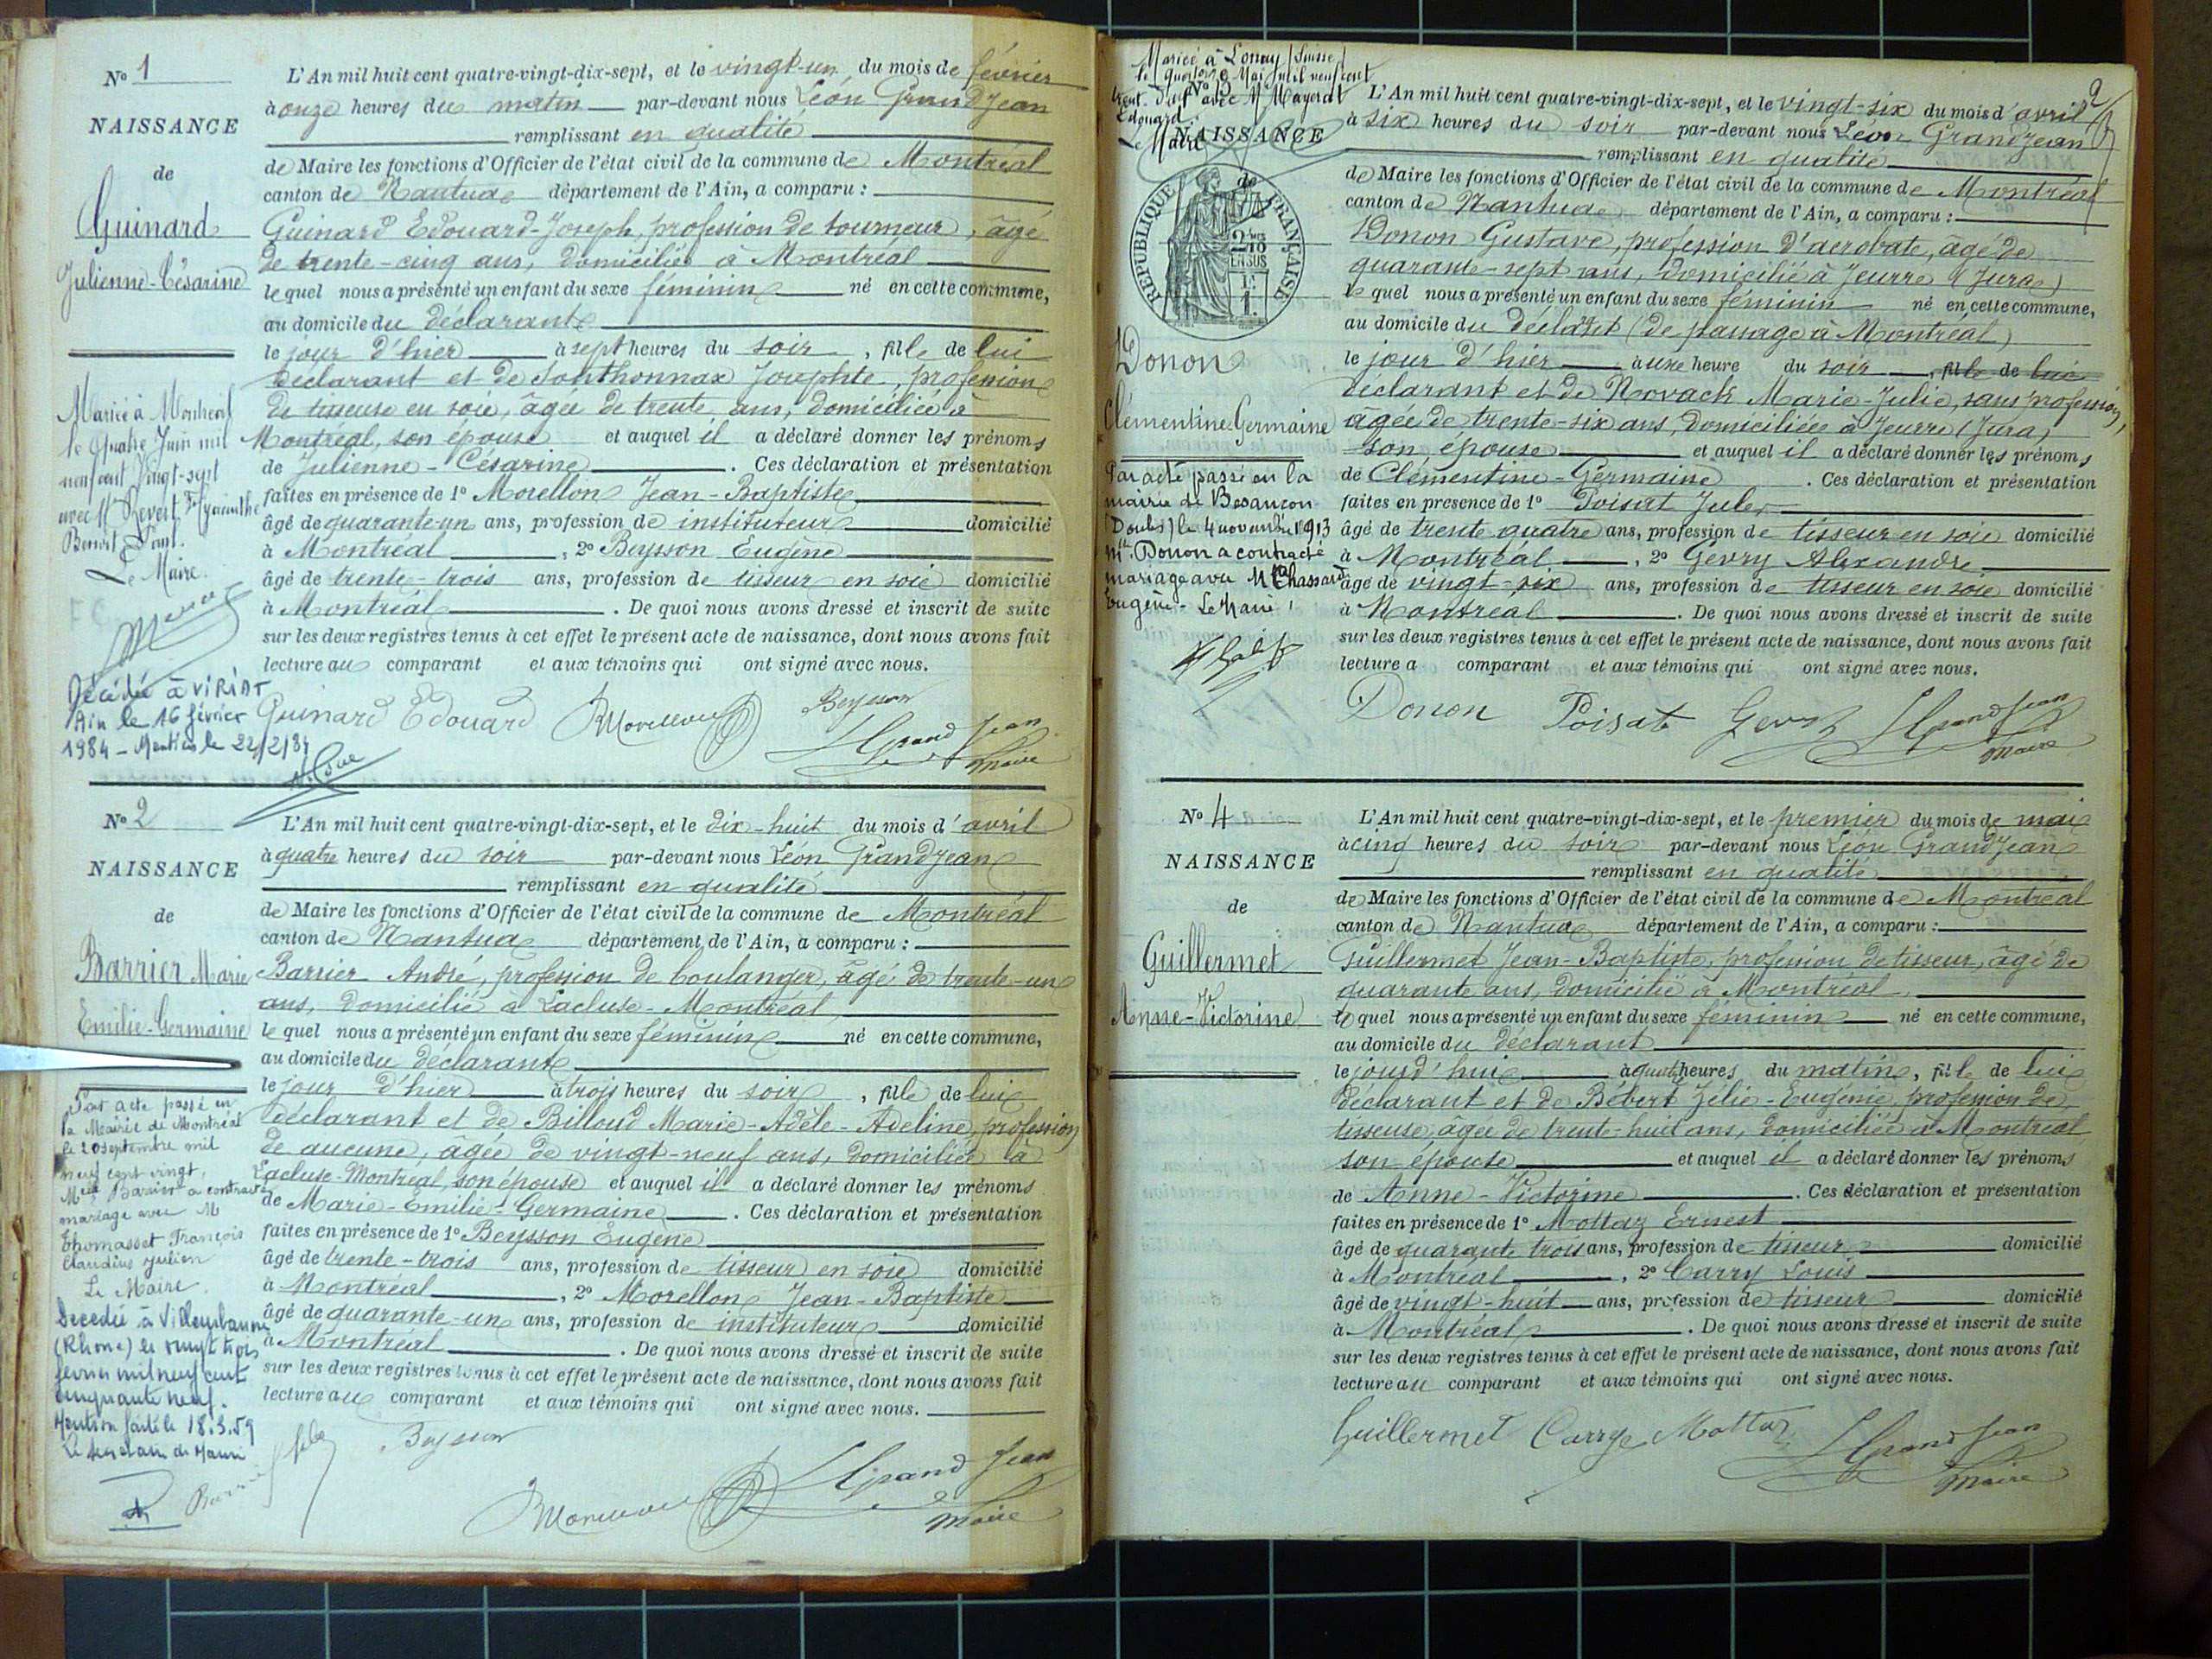 N° 1
NAISSANCE
de
Guinard
Julienne-Césarine
Marié à Montréal
le Quatre Juin mil
neuf cent Vingt-sept
avec M Revert Hyacinthe
Benoit Paul.
Le Maire.
Décédée à VIRIAT
Ain le 16 février
1984 - Mention le 22/2/84
L'An mil huit cent quatre-vingt-dix-sept, et le vingt-un du mois de février
à onze heures du matin par-devant nous Léon Grandjean
remplissant en qualité
de Maire les fonctions d'Officier de l'état civil de la commune de Montréal
canton de Nantua département de l'Ain, a comparu :
Guinard Edouard-Joseph, profession de tourneur, âgé
de trente-cinq ans, domicilié à Montréal
le quel nous a présenté un enfant du sexe féminin né en cette commune,
au domicile du déclarant
le jour d'hier à sept heures du soir, fille de lui
déclarant et de Sonthonnax Josephte, profession
de tisseuse en soie, âgée de trente ans, domiciliée à
Montréal, son épouse et auquel il a déclaré donner les prénoms
de Julienne-Césarine. Ces déclaration et présentation
faites en présence de 1° Morellon Jean-Baptiste
âgé de quarante-un ans, profession de instituteur domicilié
à Montréal, 2° Beysson Eugène
âgé de trente-trois ans, profession de tisseur en soie domicilié
à Montréal. De quoi nous avons dressé et inscrit de suite
sur les deux registres tenus à cet effet le présent acte de naissance, dont nous avons fait
lecture au comparant et aux témoins qui ont signé avec nous.
Guinard Edouard Morellon Beysson
LGrandJean
Maire
N° 2
NAISSANCE
de
Barrier Marie
Emilie-Germaine
Par acte passé en
la Mairie de Montréal
le 20 septembre mil
neuf cent vingt,
Melle Barrier a contracté
mariage avec M
Thomasset François
Claudius Julien
Le Maire.
Décédée à Villeurbanne
(Rhône) le vingt trois
février mil neuf cent
cinquante neuf.
Mention faite le 18.3.59
Le secrétaire de Mairie
L'An mil huit cent quatre-vingt-dix-sept, et le dix-huit du mois d'avril
à quatre heures du soir par-devant nous Léon Grandjean
remplissant en qualité
de Maire les fonctions d'Officier de l'état civil de la commune de Montréal
canton de Nantua département de l'Ain, a comparu :
Barrier André, profession de boulanger, âgé de trente-un
ans, domicilié à Lacluse-Montréal
le quel nous a présenté un enfant du sexe féminin né en cette commune,
au domicile du déclarant
le jour d'hier à trois heures du soir, fille de lui
déclarant et de Billoud Marie-Adèle-Adeline, profession
de aucune, âgée de vingt-neuf ans, domiciliée à
Lacluse-Montréal, son épouse et auquel il a déclaré donner les prénoms
de Marie-Emilie-Germaine. Ces déclaration et présentation
faites en présence de 1° Beysson Eugène
âgé de trente-trois ans, profession de tisseur en soie domicilié
à Montréal, 2° Morellon Jean-Baptiste
âgé de quarante-un ans, profession de instituteur domicilié
à Montréal. De quoi nous avons dressé et inscrit de suite
sur les deux registres tenus à cet effet le présent acte de naissance, dont nous avons fait
lecture au comparant et aux témoins qui ont signé avec nous.
Barrier Beysson
Morellon LGrandJean
Maire
2
Mariée à Lonay (Suisse)
le quatorze Mai mil neuf cent
trente-neuf avec M Mayerat
Edouard
Le Maire
N° 3
NAISSANCE
de
RÉPUBLIQUE FRANÇAISE
2/10
EN SUS
Donon
Clémentine Germaine
Par acte passé en la
mairie de Besançon
(Doubs) le 4 novembre 1913
Mlle Donon a contracté
mariage avec M Chassard
Eugène - Le Maire,
L'An mil huit cent quatre-vingt-dix-sept, et le vingt-six du mois d'avril
à six heures du soir par-devant nous Léon Grandjean
remplissant en qualité
de Maire les fonctions d'Officier de l'état civil de la commune de Montréal
canton de Nantua département de l'Ain, a comparu :
Donon Gustave, profession d'acrobate, âgé de
quarante-sept ans, domicilié à Jeurre (Jura)
le quel nous a présenté un enfant du sexe féminin né en cette commune,
au domicile du déclarant (de passage à Montréal)
le jour d'hier à une heure du soir, fille de lui
déclarant et de Novack Marie-Julie, sans profession,
âgée de trente-six ans, domiciliée à Jeurre (Jura)
son épouse et auquel il a déclaré donner les prénoms
de Clémentine-Germaine. Ces déclaration et présentation
faites en présence de 1° Poisat Jules
âgé de trente quatre ans, profession de tisseur en soie domicilié
à Montréal, 2° Gevry Alexandre
âgé de vingt-six ans, profession de tisseur en soie domicilié
à Montréal. De quoi nous avons dressé et inscrit de suite
sur les deux registres tenus à cet effet le présent acte de naissance, dont nous avons fait
lecture a comparant et aux témoins qui ont signé avec nous.
Donon Poisat Gevry LGrandJean
Maire
N° 4
NAISSANCE
de
Guillermet
Anne-Victorine
L'An mil huit cent quatre-vingt-dix-sept, et le premier du mois de mai
à cinq heures du soir par-devant nous Léon Grandjean
remplissant en qualité
de Maire les fonctions d'Officier de l'état civil de la commune de Montréal
canton de Nantua département de l'Ain, a comparu :
Guillermet Jean-Baptiste, profession de tisseur, âgé de
quarante ans, domicilié à Montréal,
le quel nous a présenté un enfant du sexe féminin né en cette commune,
au domicile du déclarant
le jourd'hui à quatre heures du matin, fille de lui
déclarant et de Bébert Zélie-Eugénie, profession de
tisseuse, âgée de trente-huit ans, domiciliée à Montréal
son épouse et auquel il a déclaré donner les prénoms
de Anne-Victorine. Ces déclaration et présentation
faites en présence de 1° Mottaz Ernest
âgé de quarante trois ans, profession de tisseur domicilié
à Montréal, 2° Carry Louis
âgé de vingt-huit ans, profession de tisseur domicilié
à Montréal. De quoi nous avons dressé et inscrit de suite
sur les deux registres tenus à cet effet le présent acte de naissance, dont nous avons fait
lecture au comparant et aux témoins qui ont signé avec nous.
Guillermet Carry Mottaz LGrandJean
Maire